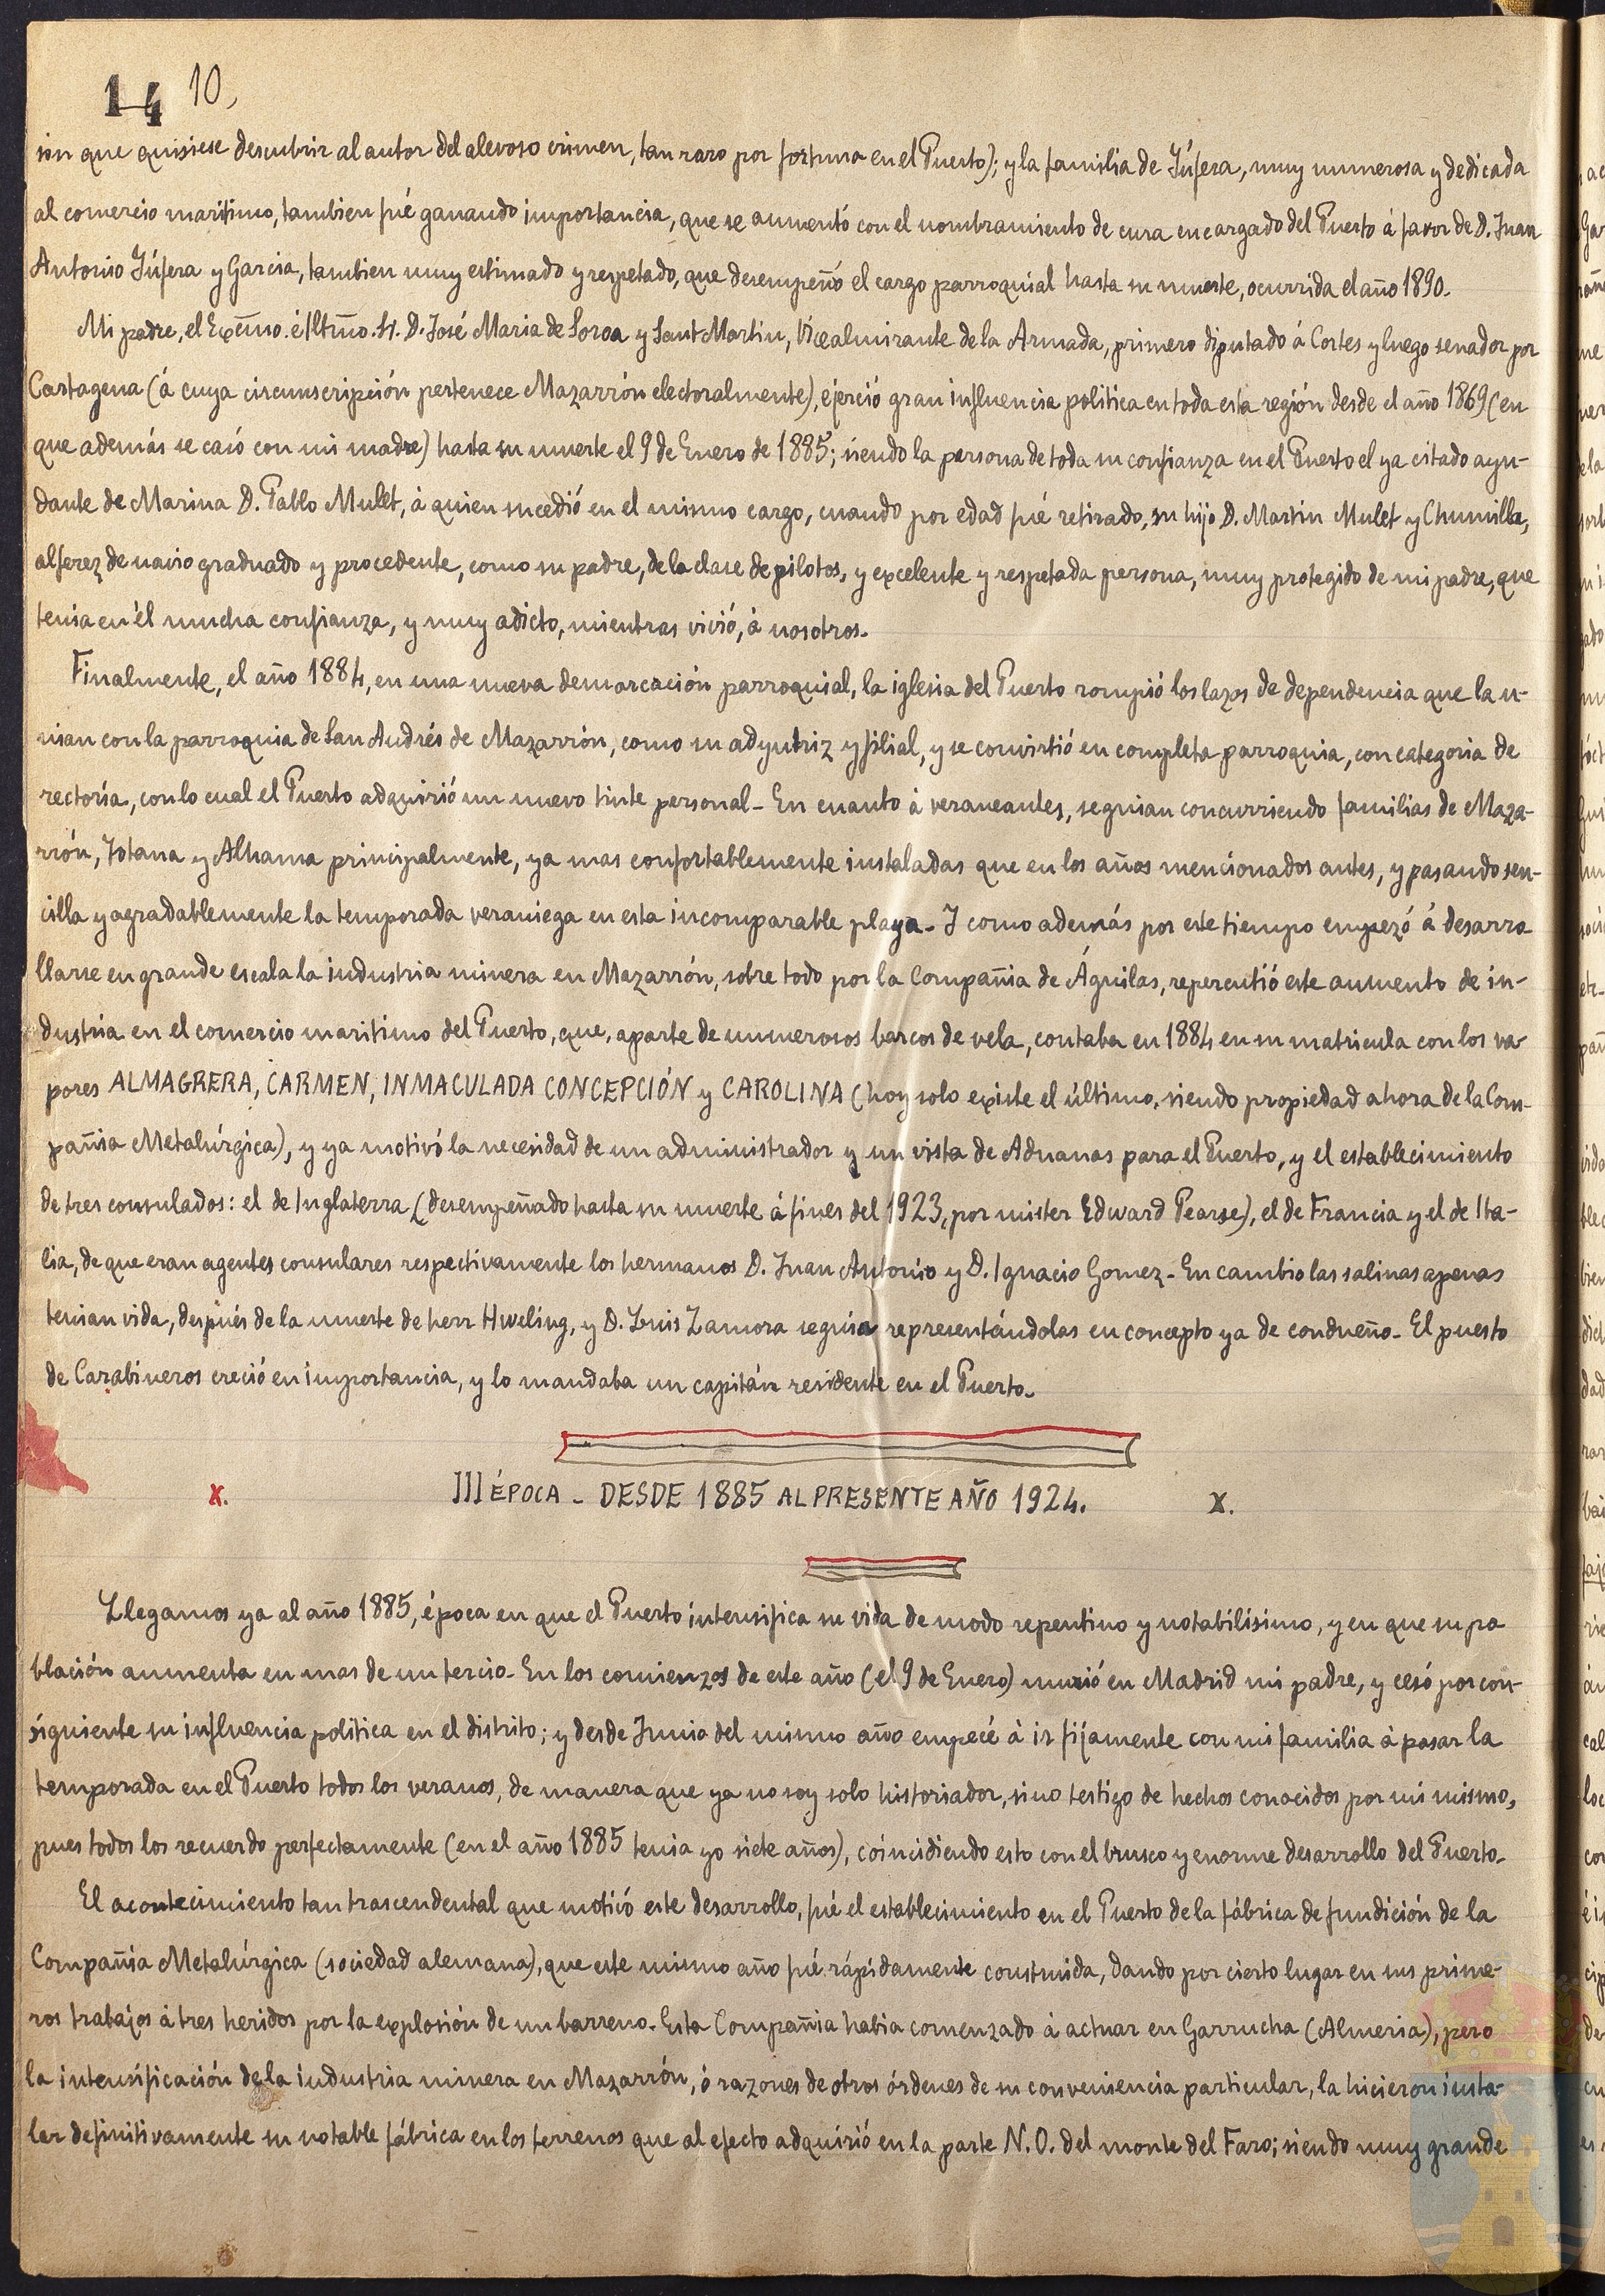 14 10,
sin que quisiese descubrir al autor del alevoso crimen, tan raro por fortuna en el Puerto); y la familia de Júfera, muy numerosa y dedicada
al comercio maritimo, tambien fué ganando importancia, que se aumentó con el nombramiento de cura encargado del Puerto á favor de D. Juan
Antonio Júfera y Garcia, tambien muy estimado y respetado, que desempeñó el cargo parroquial hasta su muerte, ocurrida el año 1890.
Mi padre, el Excmo. é Iltmo. Sr. D. José Maria de Soroa y Sant Martin, Vicealmirante de la Armada, primero diputado á Cortes y luego senador por
Cartagena (á cuya circunscripción pertenece Mazarrón electoralmente), ejerció gran influencia politica en toda esta región desde el año 1869 (en
que además se casó con mi madre) hasta su muerte el 9 de Enero de 1885; siendo la persona de toda su confianza en el Puerto el ya citado ayu-
dante de Marina D. Pablo Mulet, á quien sucedió en el mismo cargo, cuando por edad fué retirado, su hijo D. Martin Mulet y Chumilla,
alferez de navio graduado y procedente, como su padre, de la clase de pilotos, y excelente y respetada persona, muy protegido de mi padre, que
tenia en él mucha confianza, y muy adicto, mientras vivió, á nosotros.
Finalmente, el año 1884, en una nueva demarcación parroquial, la iglesia del Puerto rompió los lazos de dependencia que la u-
nian con la parroquia de San Andrés de Mazarrón, como su adyutriz y filial, y se convirtió en completa parroquia, con categoria de
rectoría, con lo cual el Puerto adquirió un nuevo tinte personal - En cuanto á veraneantes, seguian concurriendo familias de Maza-
rrón, Totana y Alhama principalmente, ya mas confortablemente instaladas que en los años mencionados antes, y pasando sen-
cilla y agradablemente la temporada veraniega en esta incomparable playa - Y como además por este tiempo empezó á desarro
llarse en grande escala la industria minera en Mazarrón, sobre todo por la Compañia de Águilas, repercutió este aumento de in-
dustria en el comercio maritimo del Puerto, que, aparte de numerosos barcos de vela, contaba en 1884 en su matricula con los va-
pores ALMAGRERA, CARMEN, INMACULADA CONCEPCIÓN y CAROLINA (hoy solo existe el último, siendo propiedad ahora de la Com-
pañia Metalúrgica), y ya motivó la necesidad de un administrador y un vista de Aduanas para el Puerto, y el establecimiento
de tres consulados: el de Inglaterra (desempeñado hasta su muerte á fines del 1923, por mister Edward Pearse), el de Francia y el de Ita-
lia, de que eran agentes consulares respectivamente los hermanos D. Juan Antonio y D. Ignacio Gomez - En cambio las salinas apenas
tenian vida, después de la muerte de herr Hweling, y D. Luis Zamora seguia representándolas en concepto ya de condueño - El puesto
de Carabineros creció en importancia, y lo mandaba un capitán residente en el Puerto -
x. III ÉPOCA - DESDE 1885 AL PRESENTE AÑO 1924. x.
Llegamos ya al año 1885, época en que el Puerto intensifica su vida de modo repentino y notabilísimo, y en que su po
blación aumenta en mas de un tercio - En los comienzos de este año (el 9 de Enero) murió en Madrid mi padre, y cesó por con-
siguiente su influencia política en el distrito; y desde Junio del mismo año empecé á ir fijamente con mi familia á pasar la
temporada en el Puerto todos los veranos, de manera que ya no soy solo historiador, sino testigo de hechos conocidos por mi mismo,
pues todos los recuerdo perfectamente (en el año 1885 tenia yo siete años), coincidiendo esto con el brusco y enorme desarrollo del Puerto -
El acontecimiento tan trascendental que motivó este desarrollo, fué el establecimiento en el Puerto de la fábrica de fundición de la
Compañia Metalúrgica (sociedad alemana), que este mismo año fué rápidamente construida, dando por cierto lugar en sus prime-
ros trabajos á tres heridos por la explosión de un barreno - Esta Compañia habia comenzado á actuar en Garrucha (Almeria), pero
la intensificación de la industria minera en Mazarrón, ó razones de otros órdenes de su conveniencia particular, la hicieron insta-
lar definitivamente su notable fábrica en los terrenos que al efecto adquirió en la parte N. O. del monte del Faro; siendo muy grande